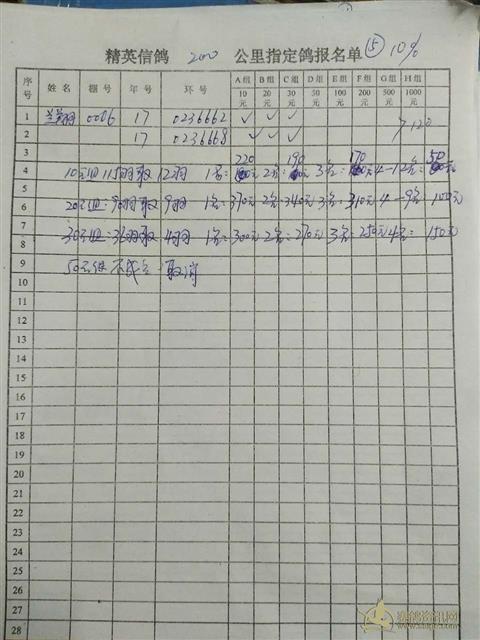 精英信鸽 200 公里指定鸽报名单 ⑤ 10%
序号 姓名 棚号 年号 环号 A组 B组 C组 D组 E组 F组 G组 H组
10元 20元 30元 50元 100元 200元 500元 1000元
1 0006 17 0236662 ✓ ✓ ✓
2 17 0236668 ✓ ✓ ✓ 120
3 220 190 170 50
4 10元组:115羽取12羽 1名: 2名: 3名: 4-12名:
5
6 20元组:90羽取9羽 1名:370元 2名:340元 3名:310元 4-9名:100元
7 30元组:36羽取4羽 1名:300元 2名:270元 3名:250元 4名:150元
8
9 50元组不成立 取消
10
11
12
13
14
15
16
17
18
19
20
21
22
23
24
25
26
27
28